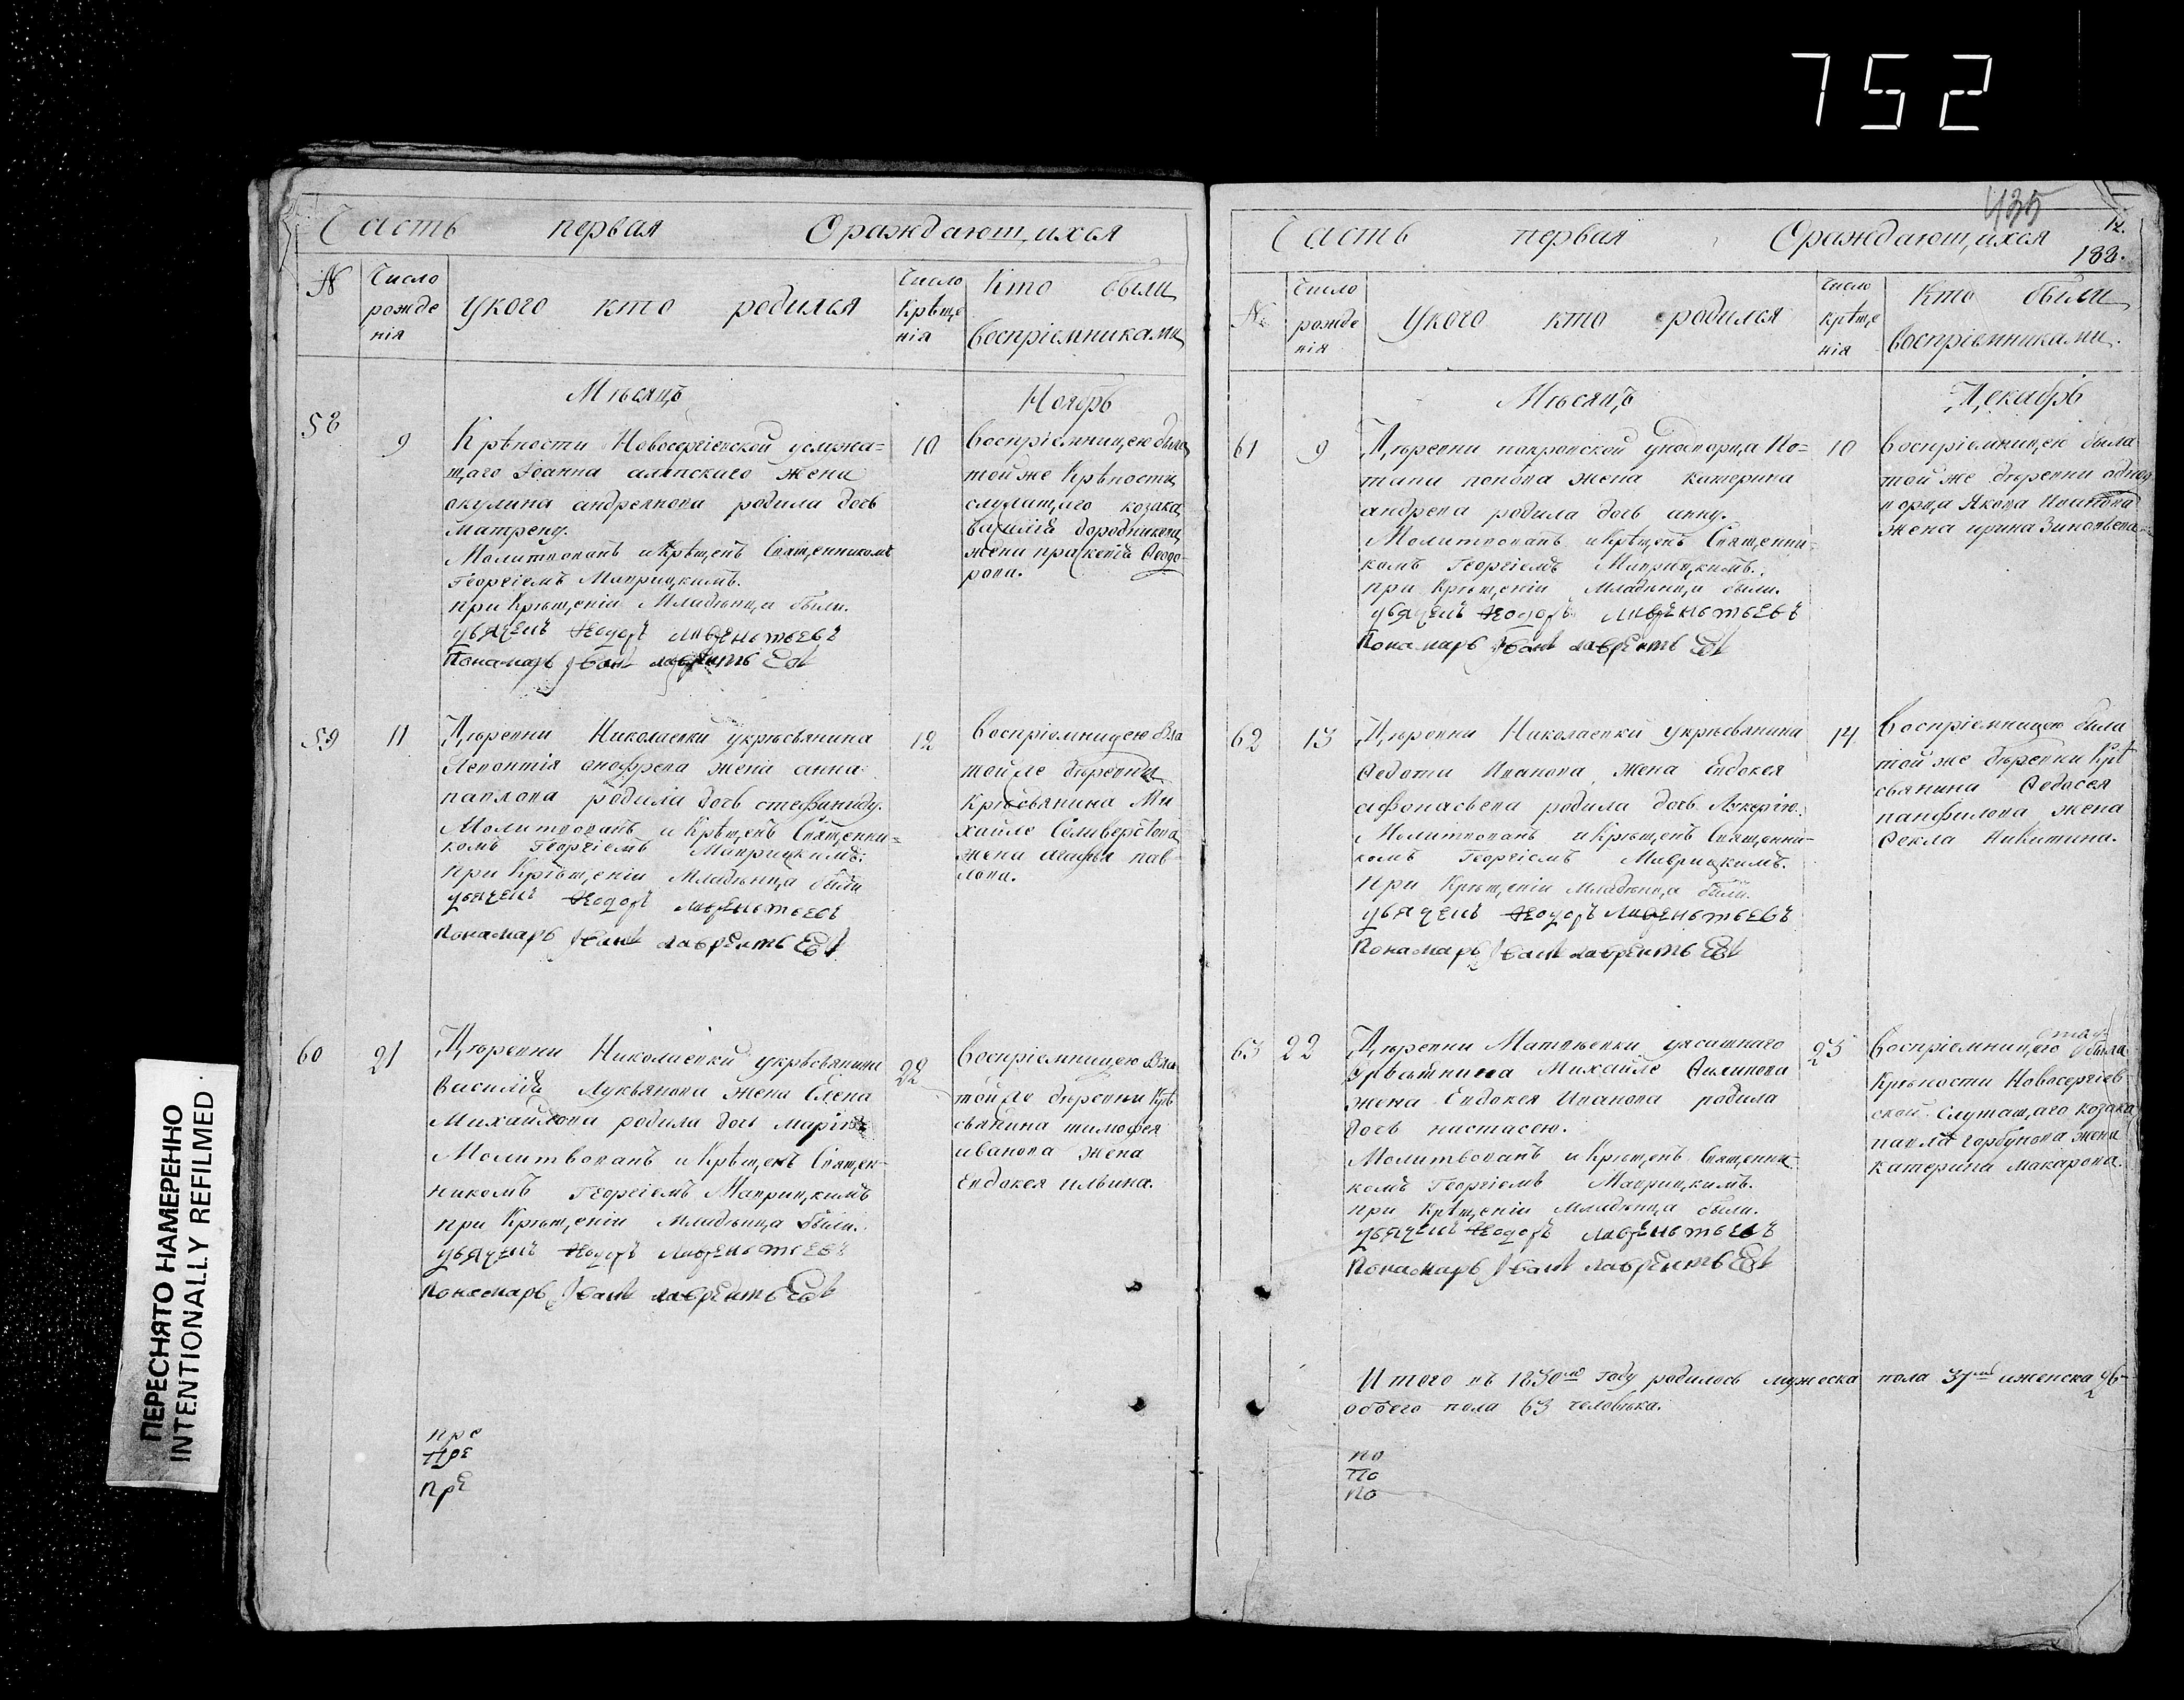 752
ПЕРЕСНЯТО НАМЕРЕННО
INTENTIONALLY REFILMED
Часть первая О раждающихся
№
Число рожде нія
У кого кто родился
Число Крѣще нія
Кто были воспріемниками
Мѣсяцъ Ноябрь
58
9
Крѣпости Новосергіевской услужа=
щаго Іоанна жена
акулина андреянова родила дочь
Матрену.
Молитвованъ и Крѣщенъ Священникомъ
Георгіемъ Маврицкимъ.
при Крѣщеніи Младѣнца были.
дьячекъ Ѳеодоръ лаврѣньтьевъ
Понамарь Іванъ лаврентьевъ
10
Воспріемницею была
той же Крѣпости
служащаго козака
Василія бородникова
жена праскевія Ѳеодо-
рова.
59
11
Дѣревни Николаевки у крѣсьянина
Леонтія анофрева жена анна
павлова родила дочь стефаниду.
Молитвованъ и Крѣщенъ Священни=
комъ Георгіемъ Маврицкимъ.
При Крѣщеніи Младѣнца были
дьячекъ Ѳеодоръ лаврѣньтьевъ
Понамарь Іванъ лаврентьевъ
12
Воспріемницею была
той же дѣревни
Крѣсьянина Ми
хайле Селиверстова
жена агафья пав-
лова.
60
21
Дѣревни Николаевки у крѣсьянина
Василія Лукьянова жена Елена
Михайлова родила дочь марію
Молитвованъ и Крѣщенъ Священ-
никомъ Георгіемъ Маврицкимъ
при Крѣщеніи Младѣнца были.
дьячекъ Ѳеодоръ лаврѣньтьевъ
Понамарь Іванъ лаврентьевъ
22
Воспріемницею была
той же дѣревни Крѣ
сьянина тимофея
иванова жена
Евдокея ильина.
пре
Пре
пре
435
12.
188.
Часть первая О раждающихся
№
Число рожде нія
У кого кто родился
Число крѣще нія
Кто были воспріемниками.
Мѣсяцъ Декабрь
61
9
Дѣревни покровской у нодворца По=
тапа попова жена катерина
андрева родила дочь анну.
Молитвованъ и Крѣщенъ Священни-
комъ Георгіемъ Маврицкимъ.
при Крѣщеніи Младѣнца были.
дьячекъ Ѳеодоръ лаврѣньтьевъ
Понамарь Іванъ лаврентьевъ
10
Воспріемницею была
той же дѣревни одно
ворца Якова
жена ирина Зиновьева
62
13
Дѣревни Николаевки у крѣсьянина
Ѳедота Иванова жена Евдокея
афонасьева родила дочь Лукерію.
Молитвованъ и Крѣщенъ Священни-
комъ Георгіемъ Маврицкимъ.
При Крѣщеніи младѣнца были.
дьячекъ Ѳеодоръ лаврѣньтьевъ
Понамарь Іванъ лаврентьевъ
14
Воспріемницею была
той же дѣревни Крѣ
сьянина Ѳедосея
панфилова жена
Ѳекла Никитина.
63
22
Дѣревни Матвѣевки у ясашнаго
Михайле Филипова
жена Евдокея Иванова родила
дочь настасею.
Молитвованъ и Крѣщенъ Священни-
комъ Георгіемъ Маврицкимъ.
При Крѣщеніи младѣнца были.
дьячекъ Ѳеодоръ лаврѣньтьевъ
Понамарь Іванъ лаврентьевъ
23
Воспріемницею была
Крѣпости Новосергіев-
ской служащаго козака
павла горбунова жена
катерина макарова.
Итого въ 1830мъ году родилось мужеска пола 37мь и женска 26-
обоего пола 63 человѣка.
по
По
по